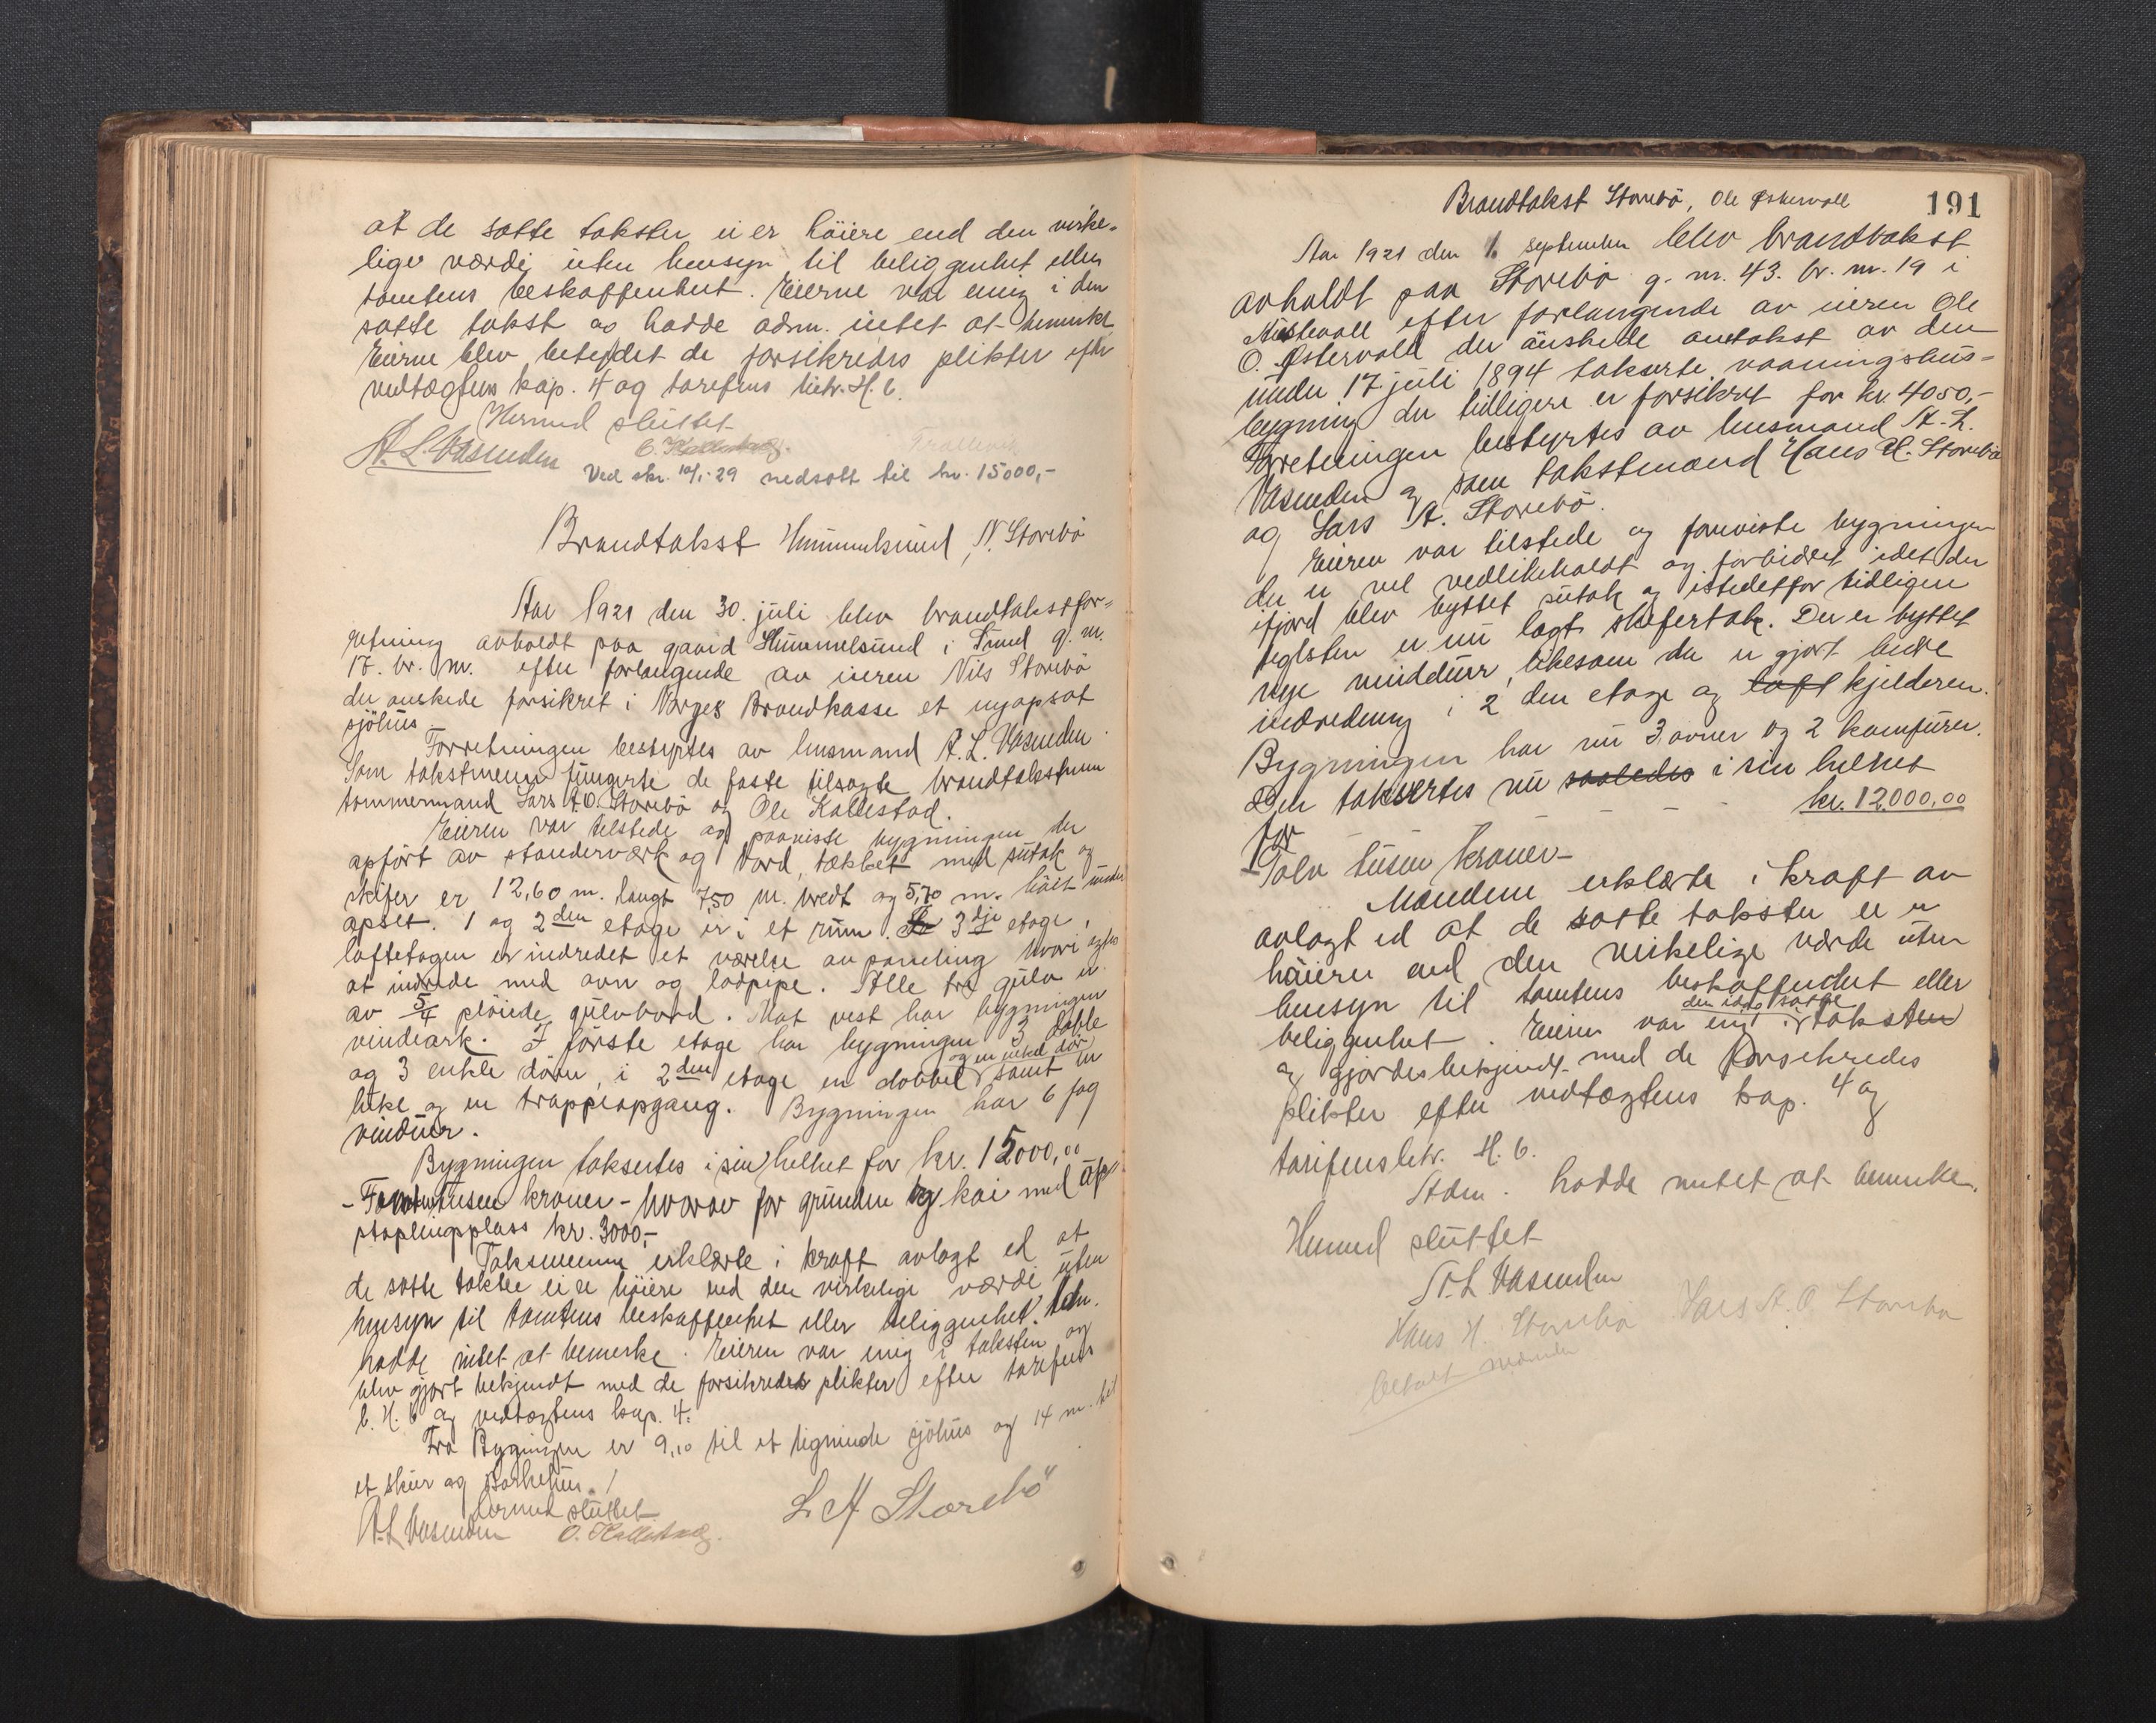 at de satte takster ei er høiere end den virke-
lige værdi uten hensyn til beliggenhet eller
tomtens beskaffenhet. Eierne var enig i den
satte takst og hadde adm. intet at bemerke
Eierne blev betydet de forsikredes plikter efter
vedtægtens kap. 4 og tarifens litr. H. 6.
Hermed sluttet
A. L. Vasenden O. Kallestad. Trællevik
Ved skr. 10/1-29 nedsatt til kr. 15000,-
Brandtakst Hummelsund, N. Storebö
Aar 1921 den 30. juli blev brandtakstfor-
retning avholdt paa gaard Hummelsund i Sund g. nr.
17. br. nr. efter forlangende av eieren Nils Storebö
der ønskede forsikret i Norges Brandkasse et nyopsat
sjöhus.
Forretningen bestyrtes av lensmand A. L. Vasenden.
Som takstmenn fungerte de faste tilsagte brandtakstmenn
tømmermand Lars A. O. Storebö og Ole Kallestad.
Eieren var tilstede og paaviste bygningen der
opfört av stenderværk og bord, tækket med sutak og
skifer er 12,60 m. langt 750 m. bredt og 5,70 m. höit under
opset. 1 og 2den etage er i et rum. 3dje etage,
loftetagen er indredet et værelse av paneling hvori agtes
at indrede med ovn og lodpipe. Alle tre gulv er
av 5/4 plöiede gulvbord. Mot vest har bygningen
vindeark. I förste etage har bygningen 3 doble
og 3 enkle döre, i 2den etage en dobbel og en enkel dör samt en
luke og en trappeopgang. Bygningen har 6 fag
vinduer.
Bygningen taksertes i sin helhet for kr. 15000,00
- Femtentusen kroner - hvorav for grunden og kai med op-
staplingsplass kr. 3000,-
Taksmenn erklærte i kraft avlagt ed at
de satte takster ei er höiere end den virkelige værdi uten
hensyn til tomtens beskaffenhet eller beliggenhet. Adm.
hadde intet at bemerke. Eieren var enig i taksten og
blev gjort bekjendt med de forsikredes plikter efter tarifens
l. H. 6 og vedtægtens kap. 4.
Fra Bygningen er 9,10 til et lignende sjöhus og 14 m. til
et skur og Barkehus.
Hermed sluttet
A L Vasenden O. Kallestad. L A Storebö
Brandtakst Storebö, Ole Østervoll 191
Aar 1921 den 1. september blev brandtakst
avholdt paa Storebö g. nr. 43. br. nr. 19 i
Austevoll efter forlangende av eieren Ole
O. Østervold der ønskede omtakst av den
under 17 juli 1894 takserte vaaningshus-
bygning der tidligere er forsikret for kr. 4050,-
Forretningen bestyrtes av lensmand A. L.
Vasenden og som takstmænd Hans H. Storebö
og Lars A. Storebö.
Eieren var tilstede og foreviste bygningen
der er vel vedlikeholdt og forbedret idet der
ifjord blev byttet sutak og istedetfor tidligere
teglsten er nu lagt skifertak. Der er byttet
nye vinduer, likesom der er gjort bedre
indredning i 2 den etage og loft kjelderen.
Bygningen har nu 3 ovner og 2 komfurer.
Den taksertes nu saaledes i sin helhet
for - - - kr. 12.000,00
- Tolv tusen kroner -
Mændene erklærte i kraft av
avlagt ed at de satte takster ei er
höiere end den virkelige værde uten
hensyn til tomtens beskaffenhet eller
beliggenhet. Eieren var enig i den idag satte taksten
og gjordes bekjendt med de forsikredes
plikter efter vedtægtens kap. 4 og
tarifens litr. H. 6.
Adm. hadde intet at bemerke.
Hermed sluttet
A. L Vasenden
Hans H. Storebö Lars A. O Storebö